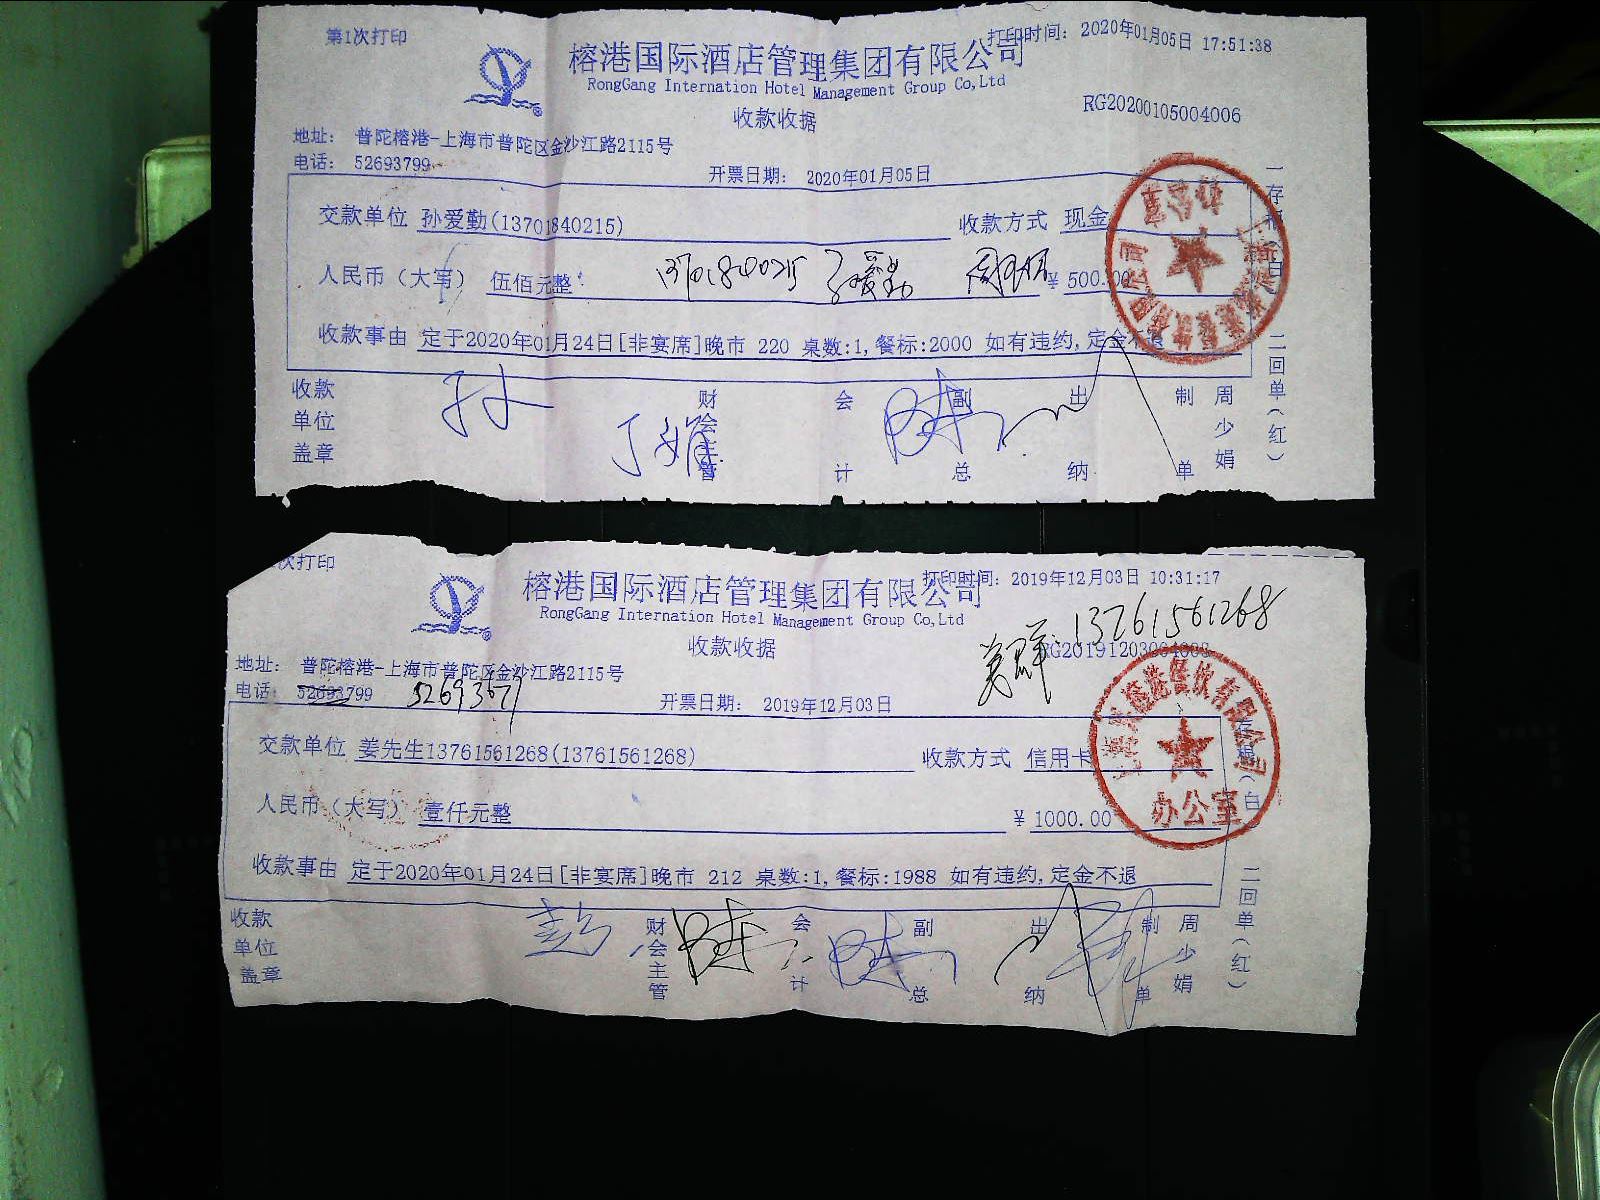 第1次打印
打印时间: 2020年01月05日 17:51:38
榕港国际酒店管理集团有限公司
RongGang Internation Hotel Management Group Co,Ltd
RG20200105004006
收款收据
地址: 普陀榕港-上海市普陀区金沙江路2115号
电话: 52693799
开票日期: 2020年01月05日
交款单位 孙爱勤(13701840215) 收款方式 现金
人民币（大写） 伍佰元整 ¥ 500.00
收款事由 定于2020年01月24日[非宴席]晚市 220 桌数:1,餐标:2000 如有违约,定金不退
收款单位盖章 财会主管 会计 副总 出纳 制单 周少娟
二回单(红)
次打印
打印时间: 2019年12月03日 10:31:17
榕港国际酒店管理集团有限公司
RongGang Internation Hotel Management Group Co,Ltd
姜群 13761561268
收款收据
地址: 普陀榕港-上海市普陀区金沙江路2115号
电话: 52693799 52693671
开票日期: 2019年12月03日
交款单位 姜先生13761561268(13761561268) 收款方式 信用卡
人民币（大写） 壹仟元整 ¥ 1000.00
办公室
收款事由 定于2020年01月24日[非宴席]晚市 212 桌数:1,餐标:1988 如有违约,定金不退
收款单位盖章 财会主管 会计 副总 出纳 制单 周少娟
二回单(红)